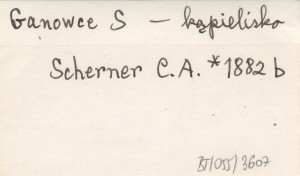 Ganowce S – kąpielisko
Scherner C.A. *1882 b
BT/055/3607